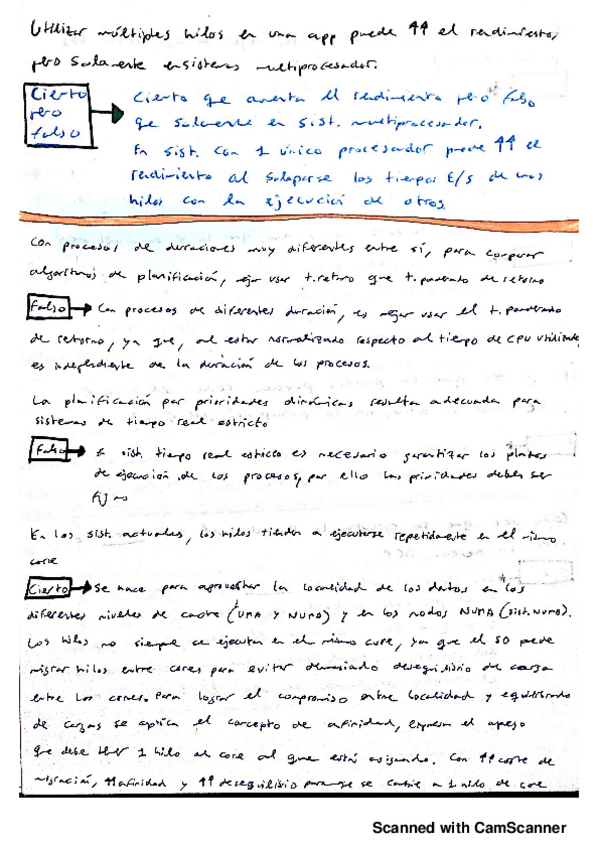 Utilizar múltiples hilos en una app puede ↑↑ el rendimiento,
pero solamente en sistemas multiprocesador.
Cierto
pero
falso
Cierto que aumenta el rendimiento pero falso
que solamente en sist. multiprocesador.
En sist. con 1 único procesador puede ↑↑ el
rendimiento al solaparse los tiempos E/S de unos
hilos con la ejecución de otros.
Con procesos de duraciones muy diferentes entre sí, para comparar
algoritmos de planificación, mejor usar t.retorno que t.ponderado de retorno
Falso → Con procesos de diferentes duración, es mejor usar el t.ponderado
de retorno, ya que, al estar normalizado respecto al tiempo de CPU utilizado,
es independiente de la duración de los procesos.
La planificación por prioridades dinámicas resulta adecuada para
sistemas de tiempo real estricto
Falso → sist. tiempo real estricto es necesario garantizar los plazos
de ejecución de los procesos, por ello las prioridades deben ser
fijas
En los sist. actuales, los hilos tienden a ejecutarse repetidamente en el mismo
core
Cierto → Se hace para aprovechar la localidad de los datos en los
diferentes niveles de cache (UMA y NUMA) y en los nodos NUMA (sist. NUMA).
Los hilos no siempre se ejecutan en el mismo core, ya que el SO puede
migrar hilos entre cores para evitar demasiado desequilibrio de carga
entre los cores. Para lograr el compromiso entre localidad y equilibrado
de cargas se aplica el concepto de afinidad, expresa el apego
que debe tener 1 hilo al core al que está asignado. Con ↑↑ coste de
migración, ↑↑ afinidad y ↑↑ desequilibrio para que se cambie a 1 hilo de core
Scanned with CamScanner